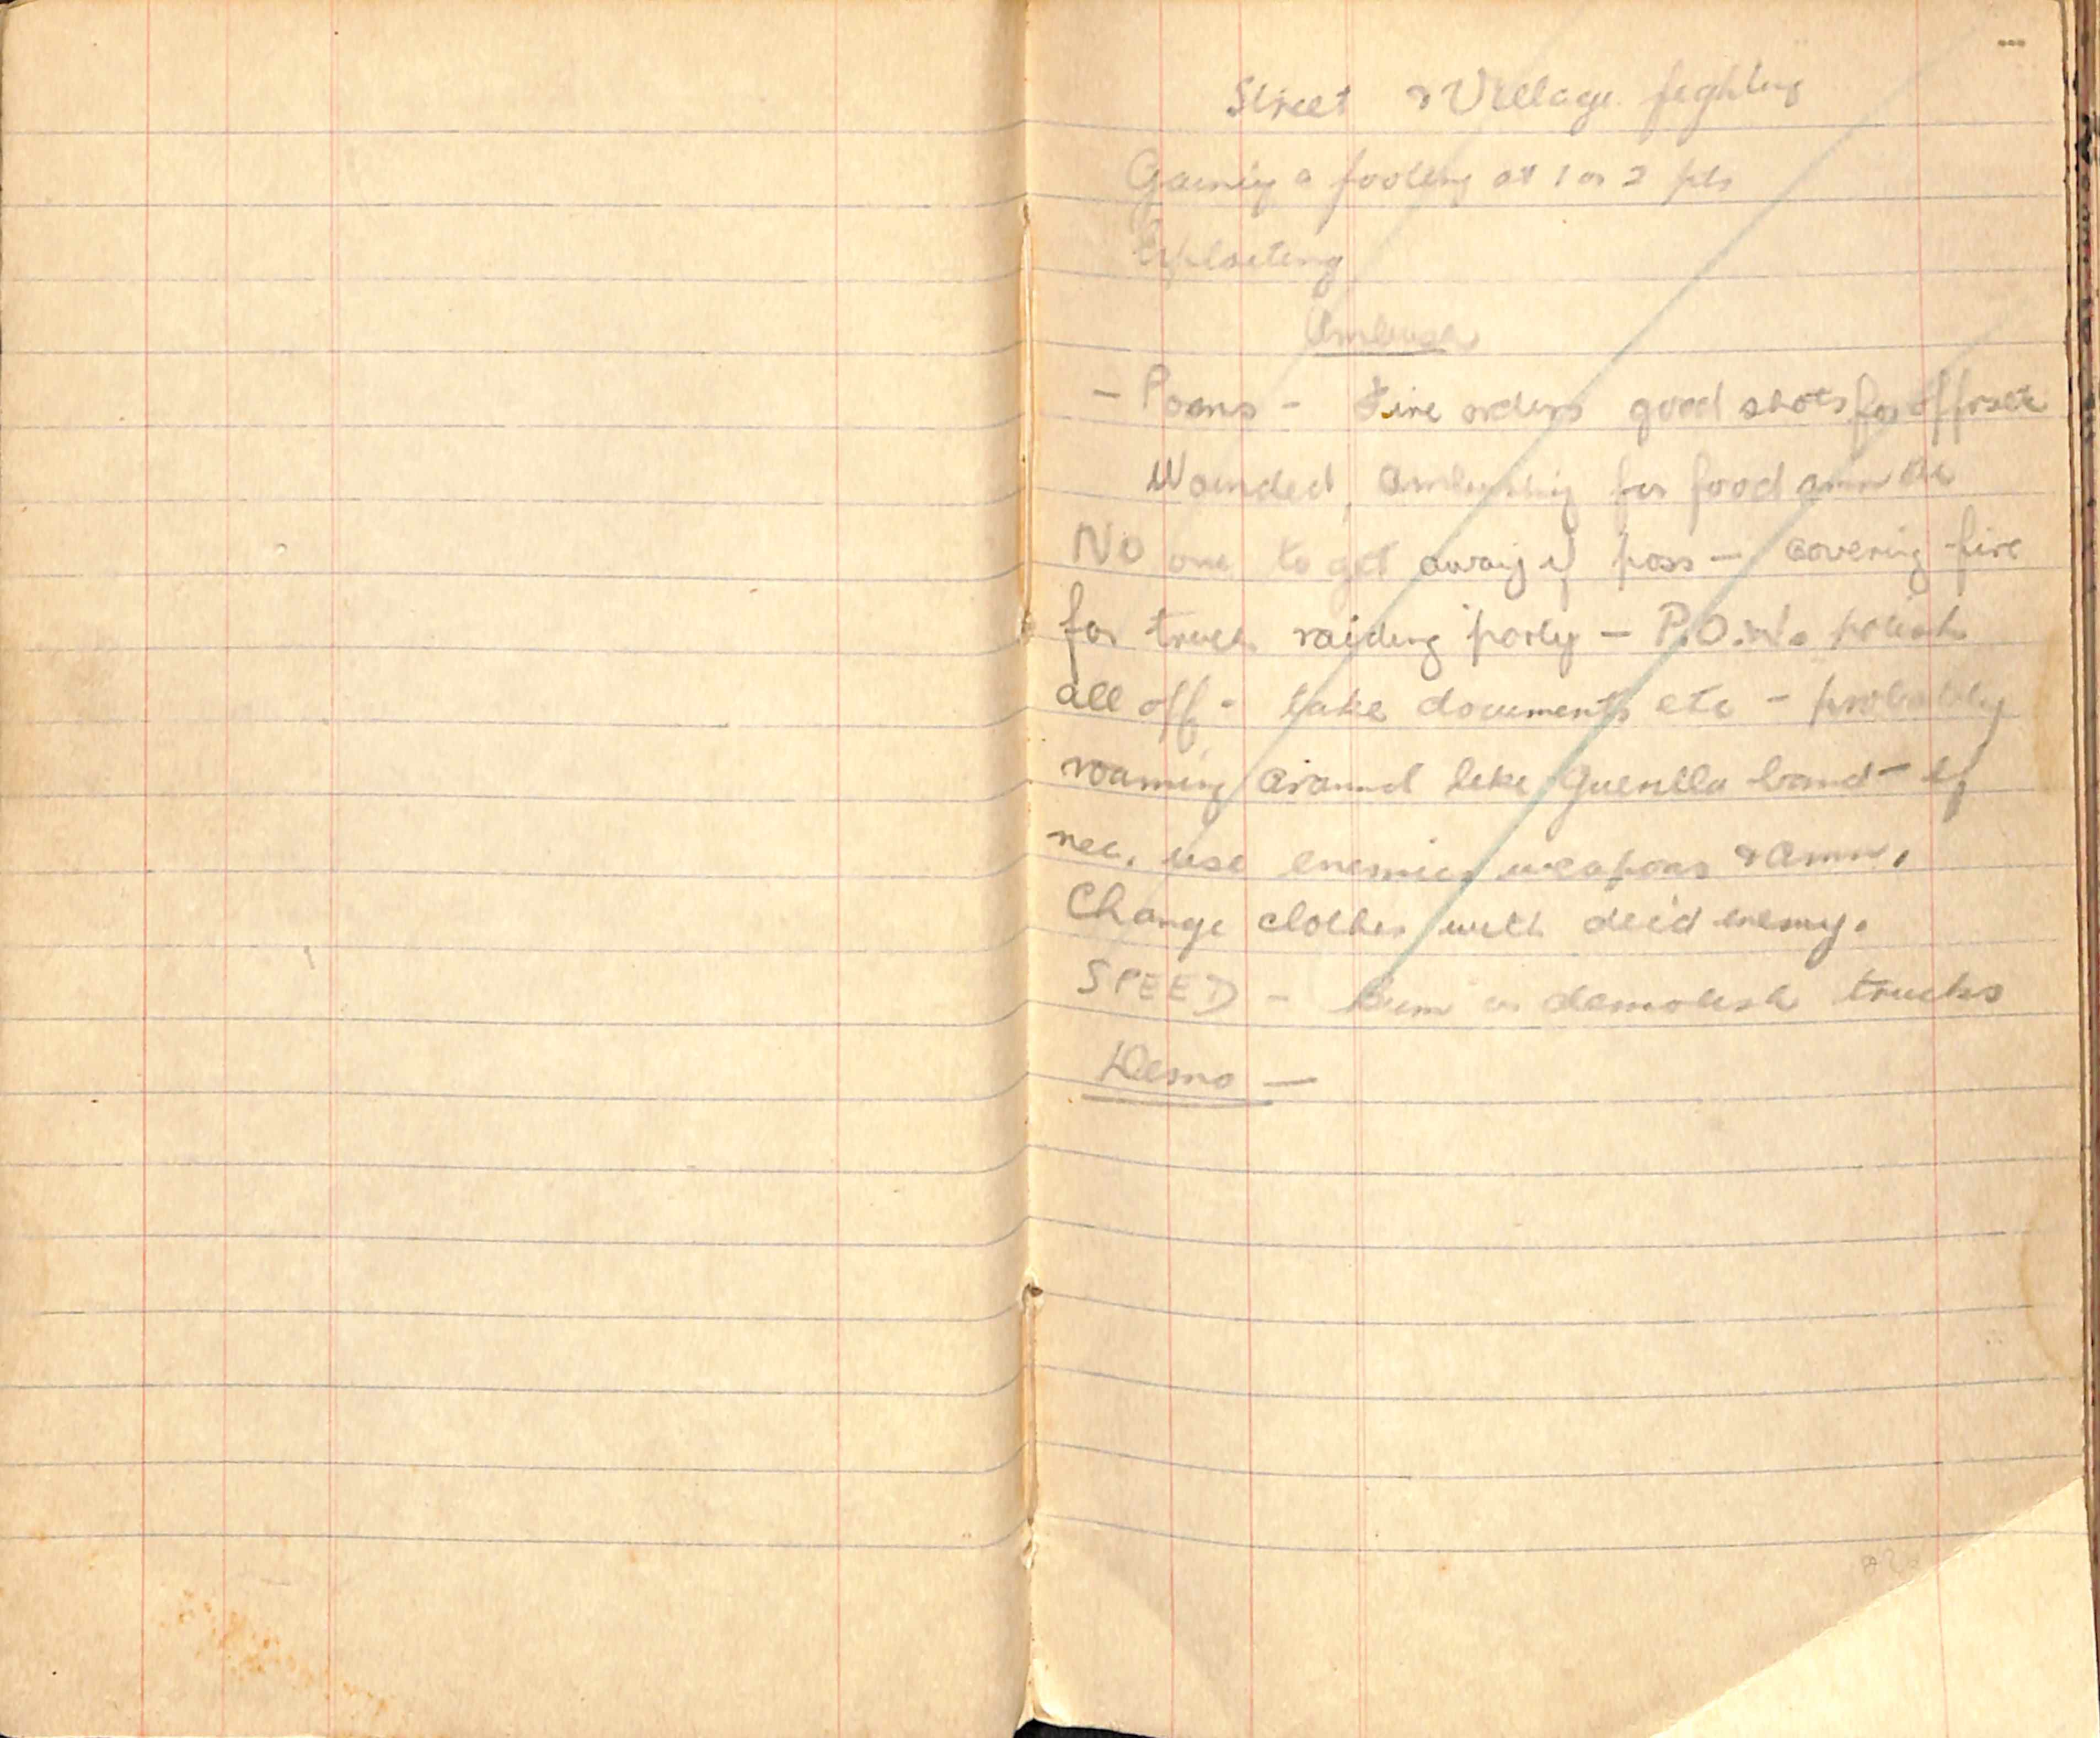 Street & Village fighting
Gaining a footing at 1 or 2 pts
Exploiting
Ambush
- Posns - Fire orders good shots for
Wounded, Ambushing for food amn
No one to get away if poss - covering fire
for truck raiding party - P.O.W. polish
all off - take documents etc - probably
roaming around like Guerilla band - if
nec. use enemies weapons & amn.
Change clothes with dead enemy.
SPEED - Burn or demolish trucks
Demo -